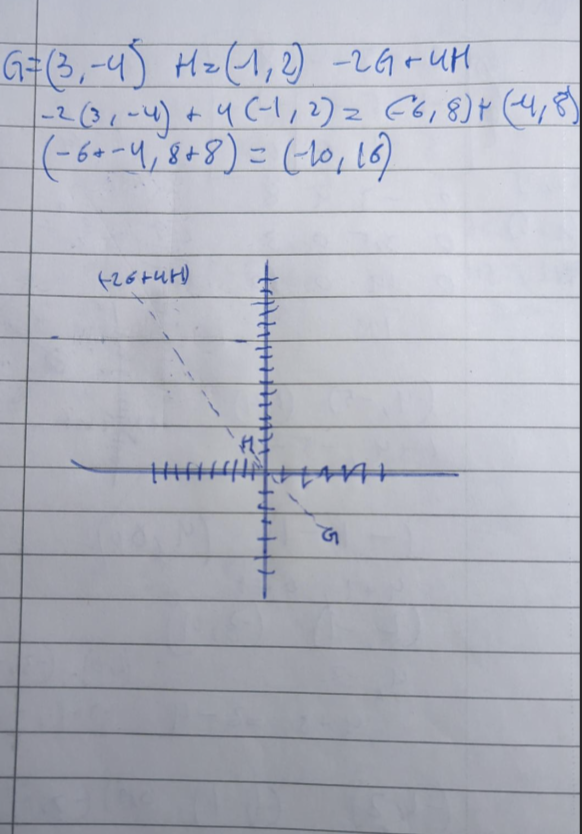 G=(3,-4) H=(-1,2) -2G+4H
-2(3,-4) + 4(-1,2) = (-6,8)+(-4,8)
(-6+-4, 8+8) = (-10,16)
(-2G+4H)
H
G